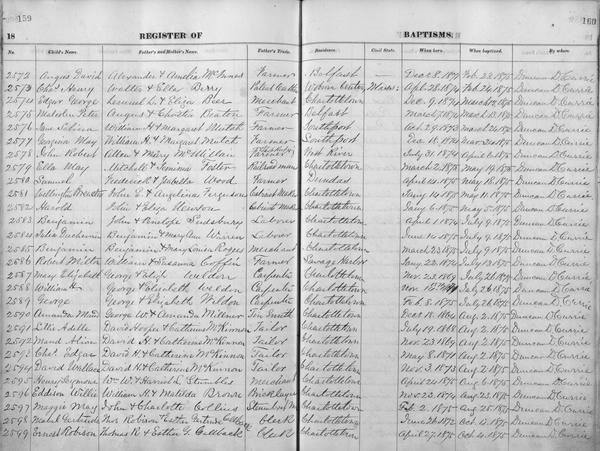 159
160
18 REGISTER OF BAPTISMS.
No. Child's Name. Father's and Mother's Name. Father's Trade. Residence. Civil State. When born. When baptized. By whom
2572 Angus David Alexander & Amelia McInnes Farmer Belfast Dec 8. 1874 Feb 23. 1875 Duncan D. Currie
2573 Chas Henry Walter & Ella Berry Mass. Apr 28. 1874 Feb 24. 1875 Duncan D. Currie
2574 Edgar George Lemuel L. & Eliza Beer Merchant Charlottetown Dec 9. 1874 1875 Duncan D. Currie
2575 Malcolm Peter Angus & Christie Beaton Farmer Belfast 1875 Duncan D. Currie
2576 William H & Margaret Farmer Southport Oct 29. 1873 1875 Duncan D. Currie
2577 Georgina May William H. & Margaret Farmer Southport Dec 15. 1874 1875 Duncan D. Currie
2578 John Robert Allan & Mary McMillan Farmer River July 31. 1874 April 6. 1875 Duncan D. Currie
2579 Ella May Mitchell & Jemima Foster Railroad man Charlottetown March 2. 1875 May 14. 1875 Duncan D. Currie
2580 Samuel Frederick & Isabella Wood Farmer Dundas April 14. 1875 May 18. 1875 Duncan D. Currie
2581 John E. & Angelina Ferguson Cabinet Maker Charlottetown 1875 May 11. 1875 Duncan D. Currie
2582 Harold John & Eliza Newson Cabinet Maker Charlottetown 1875 July 5. 1875 Duncan D. Currie
2583 Benjamin John & Penelope Saulsbury Labourer Charlottetown April 1874 July 9. 1875 Duncan D. Currie
2584 Julia Benjamin & Mary Ann Warren Labor Charlottetown June 10. 1875 July 9. 1875 Duncan D. Currie
2585 Benjamin Benjamin & Mary Louisa Rogers Merchant Charlottetown March 23. 1875 July 9. 1875 Duncan D. Currie
2586 Robert Milton William & Susanna Coffin Farmer Savage Harbor Jany 22. 1874 July 13. 1875 Duncan D. Currie
2587 Mary Elizabeth George & Elizh Weldon Carpenter Charlottetown Nov 23. 1869 July 26. 1875 Duncan D. Currie
2588 William H. George & Elizabeth Weldon Carpenter Charlottetown Nov July 26. 1875 Duncan D. Currie
2589 George George & Elizabeth Weldon Carpenter Charlottetown Feb 8. 1875 July 26. 1875 Duncan D. Currie
2590 Amanda Maud George W. & Amanda Millner Tin Smith Charlottetown Dec 18. 1864 Aug 2. 1875 Duncan D. Currie
2591 Lillie Adelle David Hooper & Catherine McKinnon Tailor Charlottetown July 19. 1868 Aug 2. 1875 Duncan D. Currie
2592 Maud Alice David H. & Catherine McKinnon Tailor Charlottetown Nov 23. 1869 Aug 2. 1875 Duncan D. Currie
2593 Chas Edgar David H. & Catherine McKinnon Tailor Charlottetown May 8. 1871 Aug 2. 1875 Duncan D. Currie
2594 David Wallace David H. & Catherine McKinnon Tailor Charlottetown Nov 3. 1873 Aug 2. 1875 Duncan D. Currie
2595 Henry Seymour Wm W. & Harriet L. Stumbles Merchant Charlottetown April 24. 1875 Aug 6. 1875 Duncan D. Currie
2596 Eddison Willie William H. & Matilda Brown Bricklayer Charlottetown Nov 23. 1874 Aug 23. 1875 Duncan D. Currie
2597 Maggie May John & Charlotte Collins Charlottetown Feb 2. 1875 Aug 25. 1875 Duncan D. Currie
2598 Mabel Gertrude Thos Robison & Esther Gertrude Callbeck Clerk Charlottetown June 26. 1872 Oct 4. 1875 Duncan D. Currie
2599 Ernest Robison Thomas R. & Esther G. Callbeck Clerk Charlottetown April 27. 1875 Oct 4. 1875 Duncan D. Currie